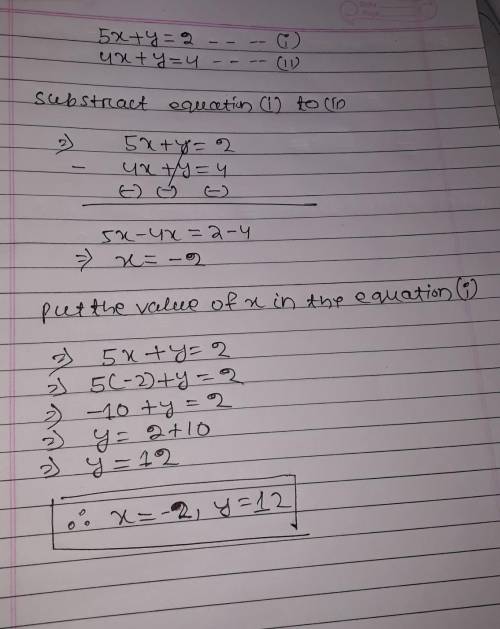 5x+y=2 -- -- (i)
4x+y=4 -- -- (ii)
substract equation (i) to (ii)
⇒ 5x+y=2
- 4x+y=4
(-) (-) (-)
5x-4x=2-4
⇒ x=-2
put the value of x in the equation (i)
⇒ 5x+y=2
⇒ 5(-2)+y=2
⇒ -10+y=2
⇒ y=2+10
⇒ y=12
∴ x=-2, y=12